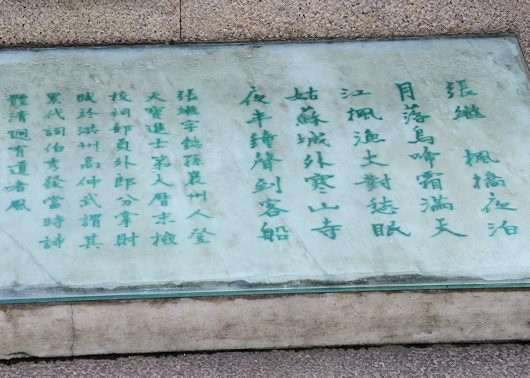 張繼 楓橋夜泊
月落烏啼霜滿天
江楓漁火對愁眠
姑蘇城外寒山寺
夜半鐘聲到客船
張繼字懿孫襄州人登
天寶進士第大曆末檢
校祠部員外郎分掌財
賦於洪州高仲武謂其
累代詞伯秀發當時詩
體清迥有道者風